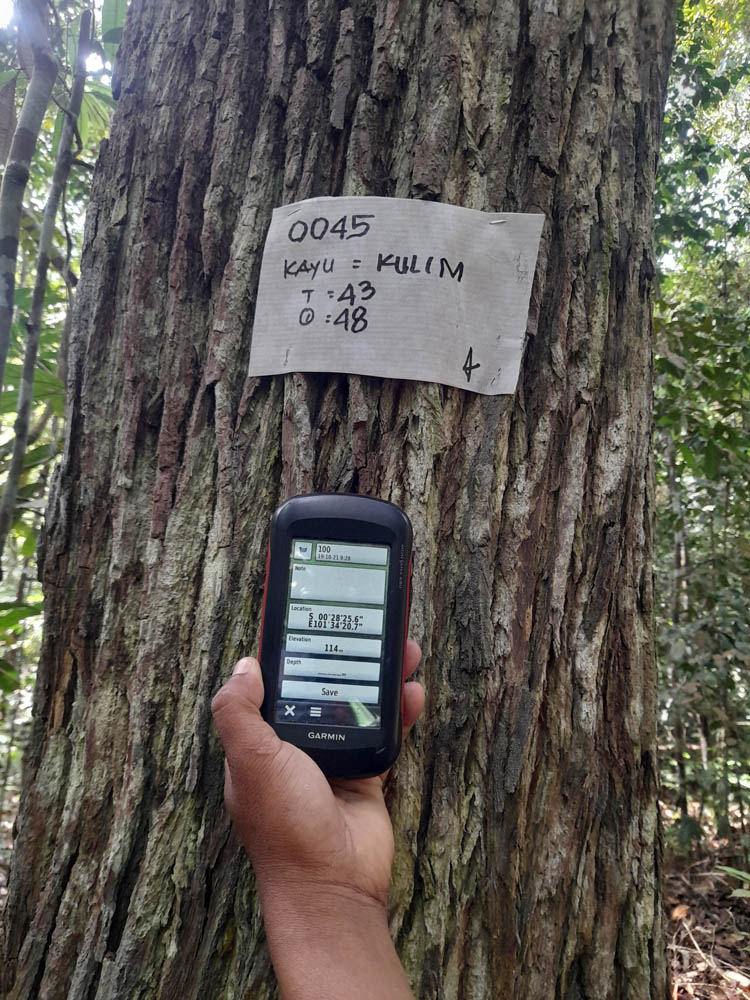 0045
KAYU = KULIM
T = 43
Ꝋ : 48
100
19-10-21 9:28
Note
Location
S 00°28'25.6"
E101°34'20.7"
Elevation
114m
Depth
Save
GARMIN